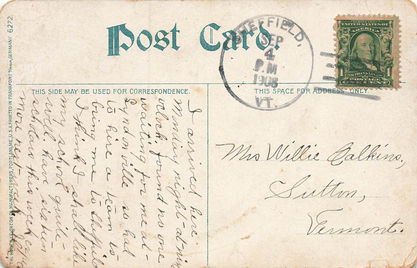 Post Card
THIS SIDE MAY BE USED FOR CORRESPONDENCE.
THIS SPACE IS FOR ADDRESS.
SHEFFIELD,
SEP
4
P M
VT.
I arrived here
Monday night at nine
o'clock found no one
waiting for me at
Lyndonville so had
to hire a team to
bring me to Sheffield
I think I shall like
my school quite
well, have sixteen
scholars this week,
more next week.
Mrs Willie Calkins,
Sutton,
Vermont.
6272